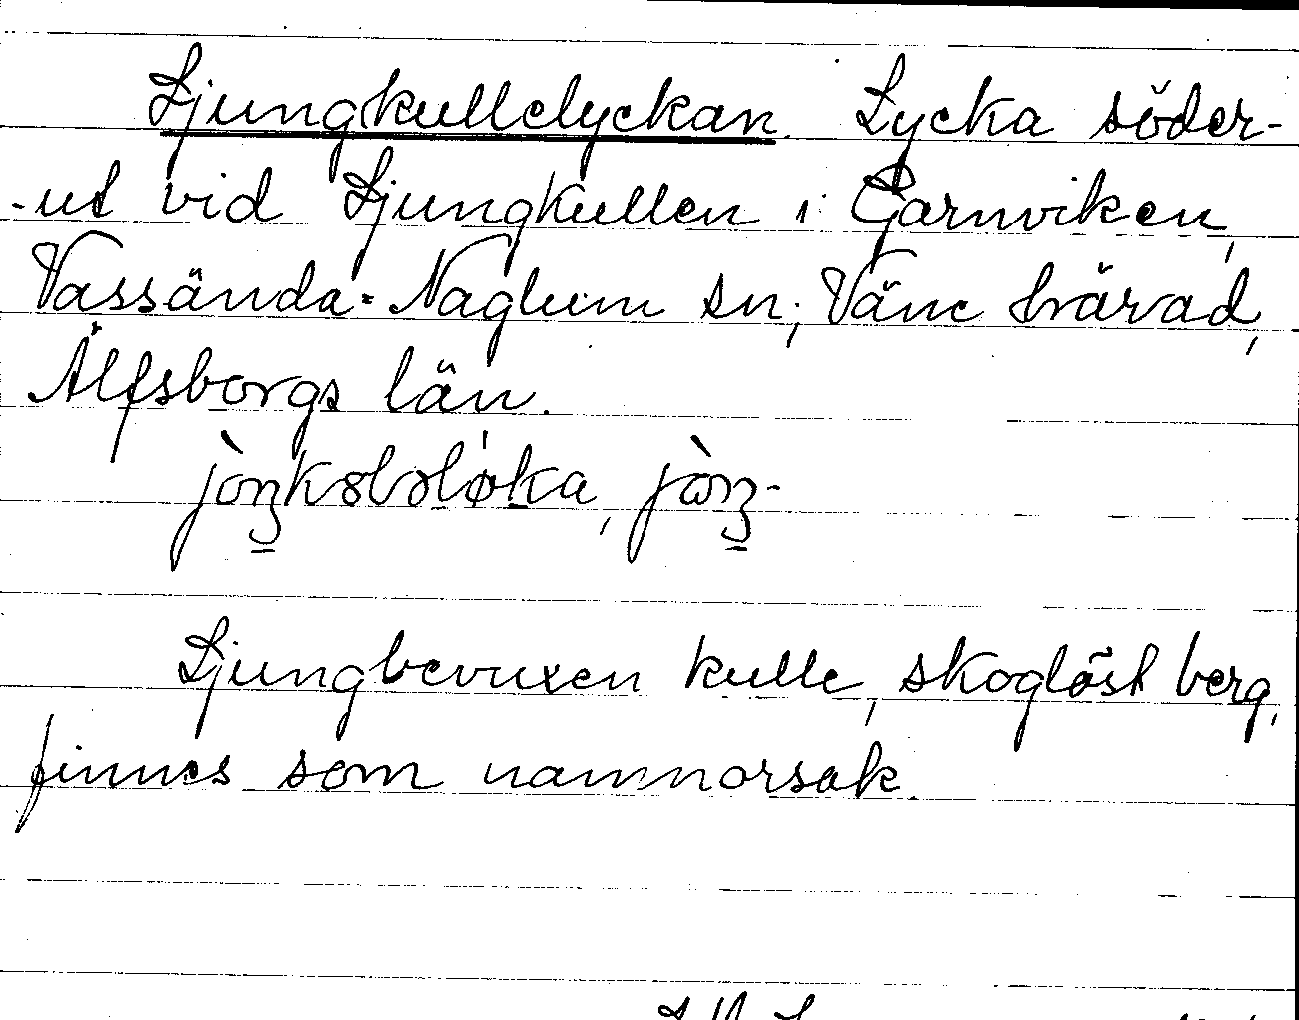 Ljungkullelyckan. Lycka söder-
-ut vid Ljungkullen i Garnviken,
Vassända-Naglum sn, Väne härad,
Älfsborgs län.
Ljungbevuxen kulle, skoglöst berg,
finnes som namnorsak.